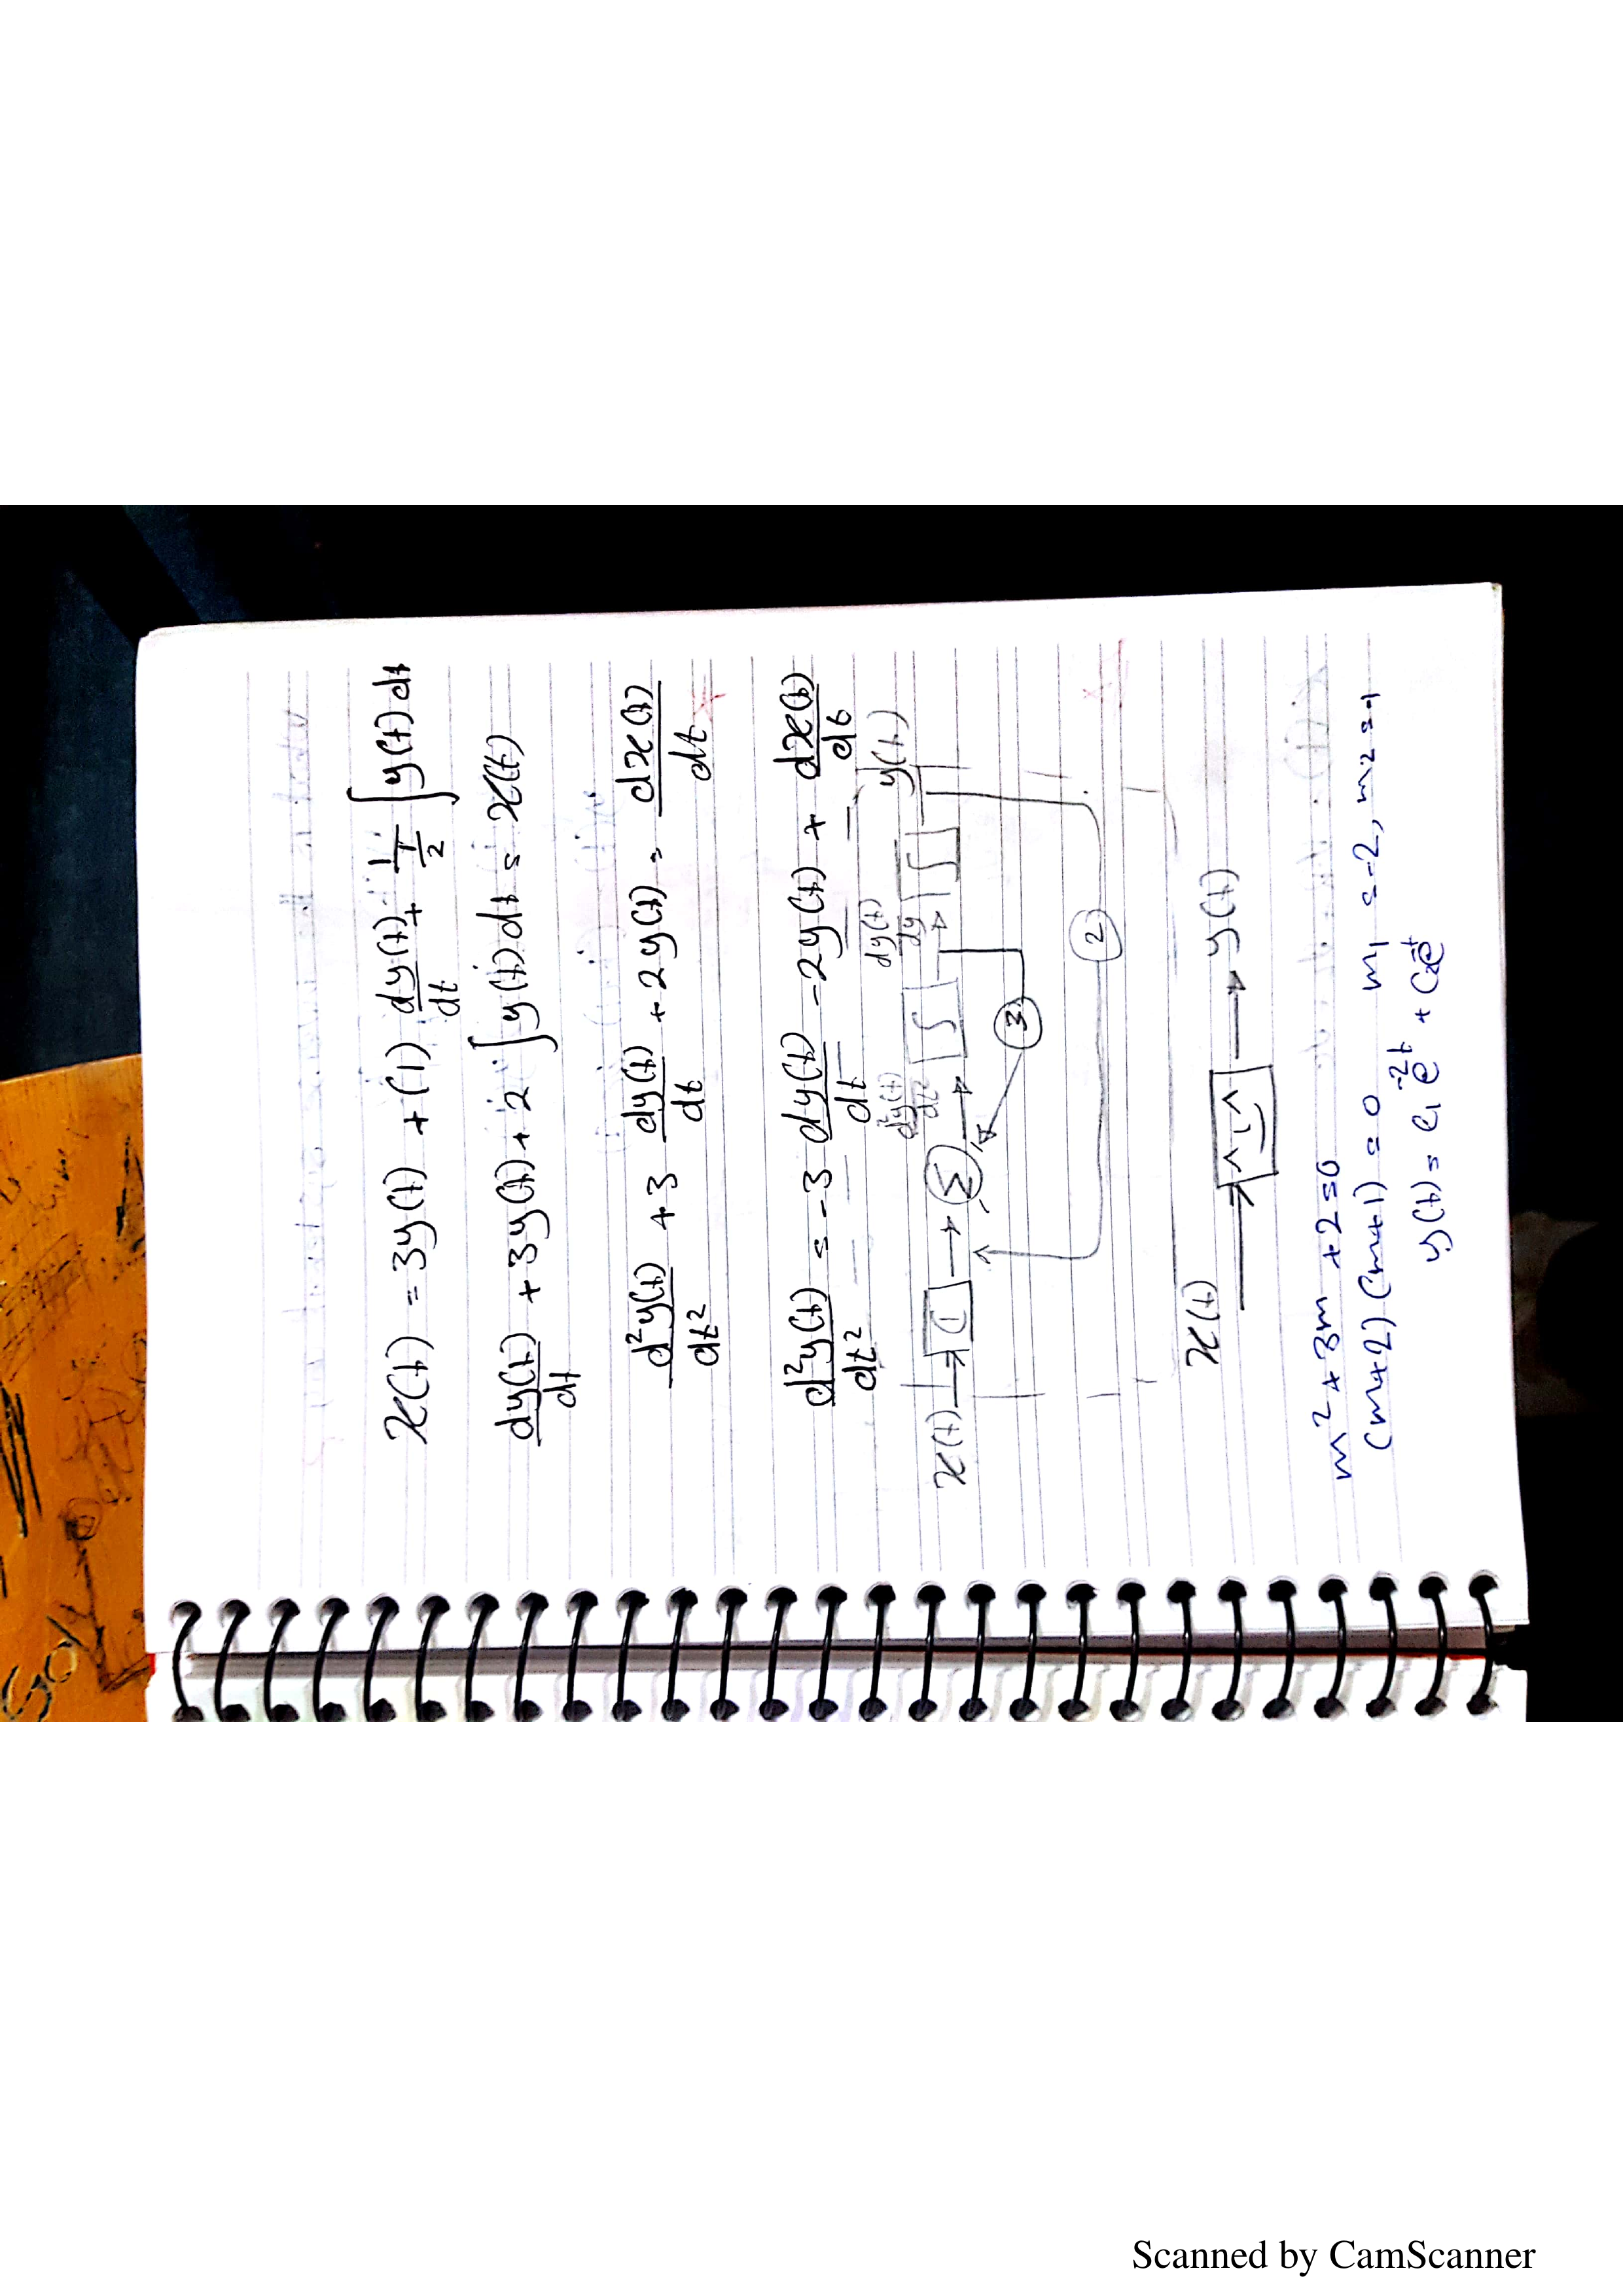 x(t) = 3y(t) + (1) dy(t)/dt + 1/(1/2) ∫ y(t) dt
dy(t)/dt + 3y(t) + 2 ∫ y(t) dt = x(t)
d²y(t)/dt² + 3 dy(t)/dt + 2y(t) = dx(t)/dt
d²y(t)/dt² = -3 dy(t)/dt - 2y(t) + dx(t)/dt
d²y(t)/dt² dy(t)/dy
x(t) → 1 → Σ → ∫ → ∫ y(t)
3
2
x(t) → → y(t)
m² + 3m + 2 = 0
(m+2)(m+1) = 0 m₁ = -2, m₂ = -1
y(t) = c₁e^-2t + c₂e^-t
GOY
Scanned by CamScanner